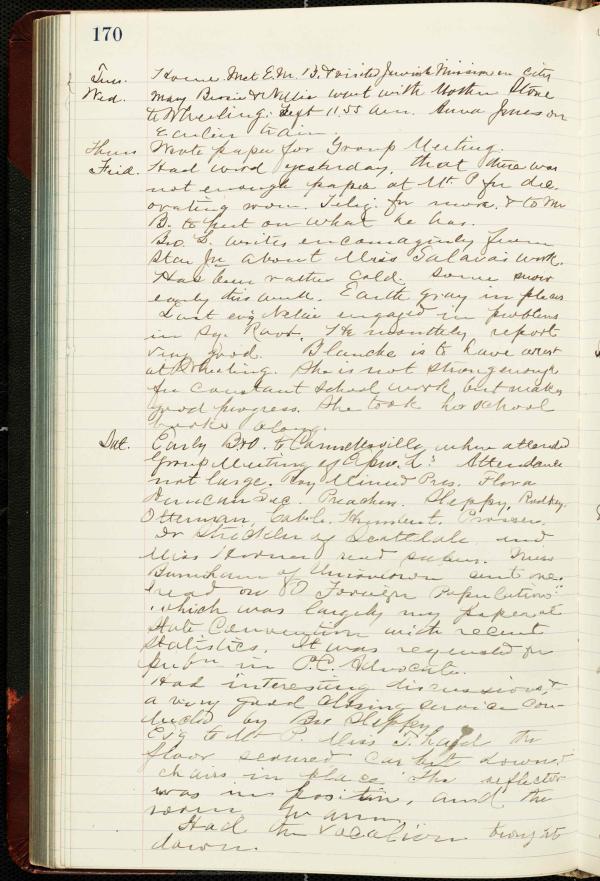 170
Tues. Home. Met E.M.B. & visited Jewish Mission in city
Wed. Mary Brown & Nellie went with Mother Stone
to Wheeling. Left 11.55 a.m. Anna Jones on
Earlier train.
Thurs Wrote paper for Group Meeting.
Frid. Had word yesterday, that there was
not enough paper at Mt. P for dec-
orating room. Telig. for more, & to Mr
B. to put on what he has.
Bro. S. writes encouragingly from
about Miss work.
Has been rather cold. Some snow
early this week. Earth gray in places
Last evg Nellie engaged in problems
in Sq. Root. The monthly report
very good. Blanche is to have a rest
at Wheeling. She is not strong enough
for constant school work, but makes
good progress. She took her school
books along.
Sat. Early B&O. to Connellsville, where attended
Group Meeting of Epw. L's Attendance
not large. Roy Pres. Flora
Duncan Sec. Preachers. Sleppy,
Otterman,
Dr of Scottdale and
Miss read papers. Miss
Burnham of Uniontown sent one.
I read on "O Foreign Population"
which was largely my paper at
State Convention with recent
statistics. It was requested for
pubn in P.C. Advocate.
Had interesting discussions, &
a very good closing service con-
ducted by Bro Sleppy
Evg to Mt P. Miss T. had the
floor scoured carpet down, &
chairs in place The reflector
was in position, and the
room
Had the brought
down.